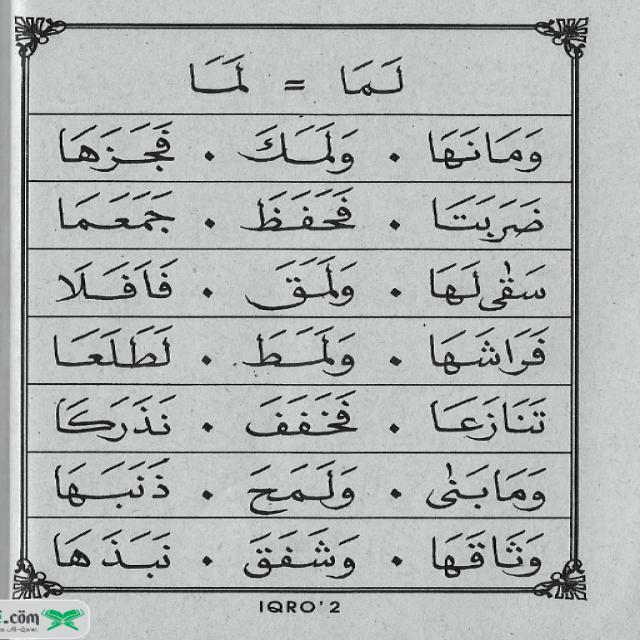 لَمَا = لَمَا
وَمَانَهَا . وَلَمَكَ . فَجَزَهَا
ضَرَبَتَا . فَحَفَظَ . جَمَعَمَا
سَقٰى لَهَا . وَلَمَقَ . فَاَفَلَا
فَرَاشَهَا . وَلَمَطَ . لَطَلَعَا
تَنَازَعَا . فَخَفَفَ . نَذَرَكَا
وَمَابَنٰى . وَلَمَحَ . ذَنَبَهَا
وَثَاقَهَا . وَشَفَقَ . نَبَذَهَا
IQRO'2
.com